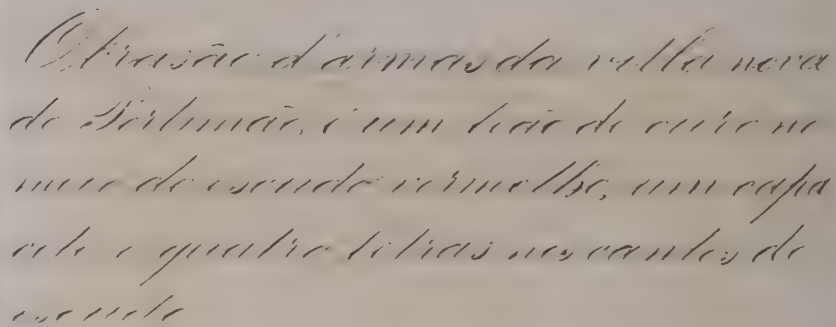 O brasão d'armas da villa nova
de Portimão, é um leão de ouro no
meio do escudo vermelho, um capa
cete e quatro letras nos cantos do
escudo